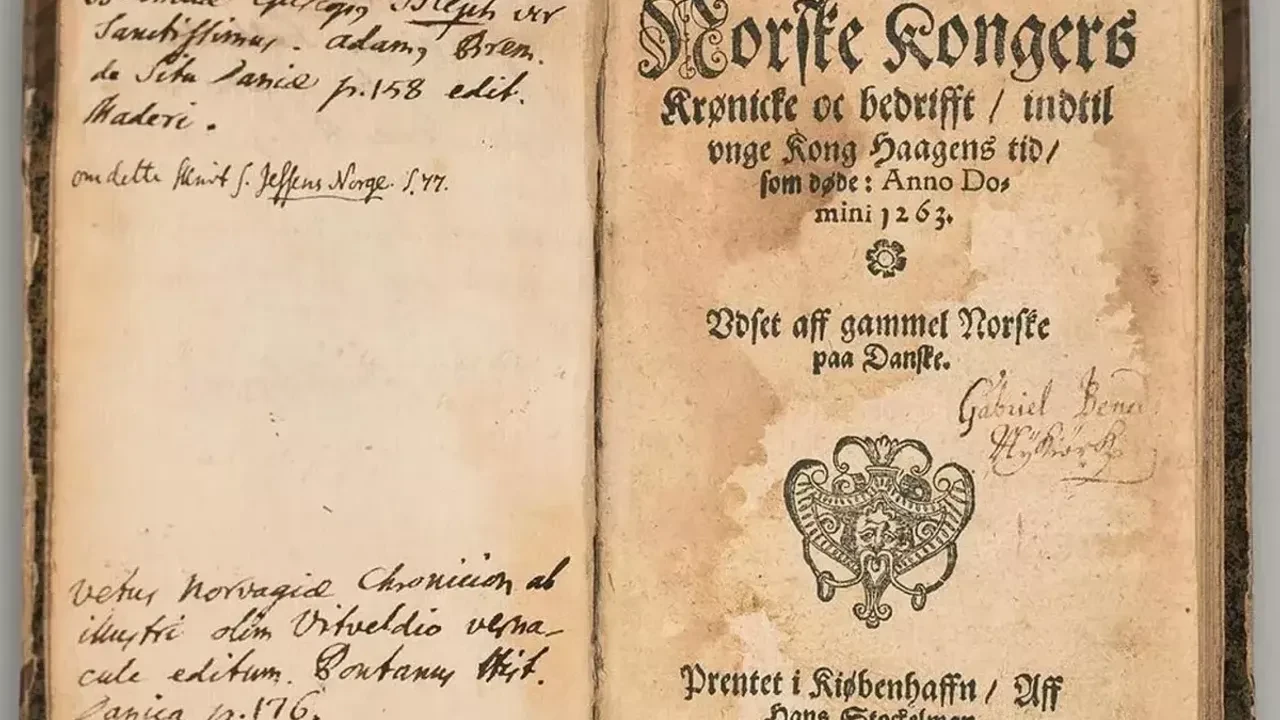 Episcopus Isleph vir
Sanctissimus. Adamus Brem.
de Situ Daniæ p. 158 edit.
Maderi.
om dette Skrivt s. Jessens Norge. S. 77.
vetus Norvagiæ Chronicion ab
illustri olim Vitveldio verna-
cule editum. Pontanus Hist.
Danica p. 176.
Norſke Kongers
Krønicke oc bedrifft / indtil
vnge Kong Haagens tid /
ſom døde: Anno Do-
mini 1263.
Vdſet aff gammel Norſke
paa Danſke.
Gabriel
Prentet i Kiøbenhaffn / Aff
Hans Stockelman